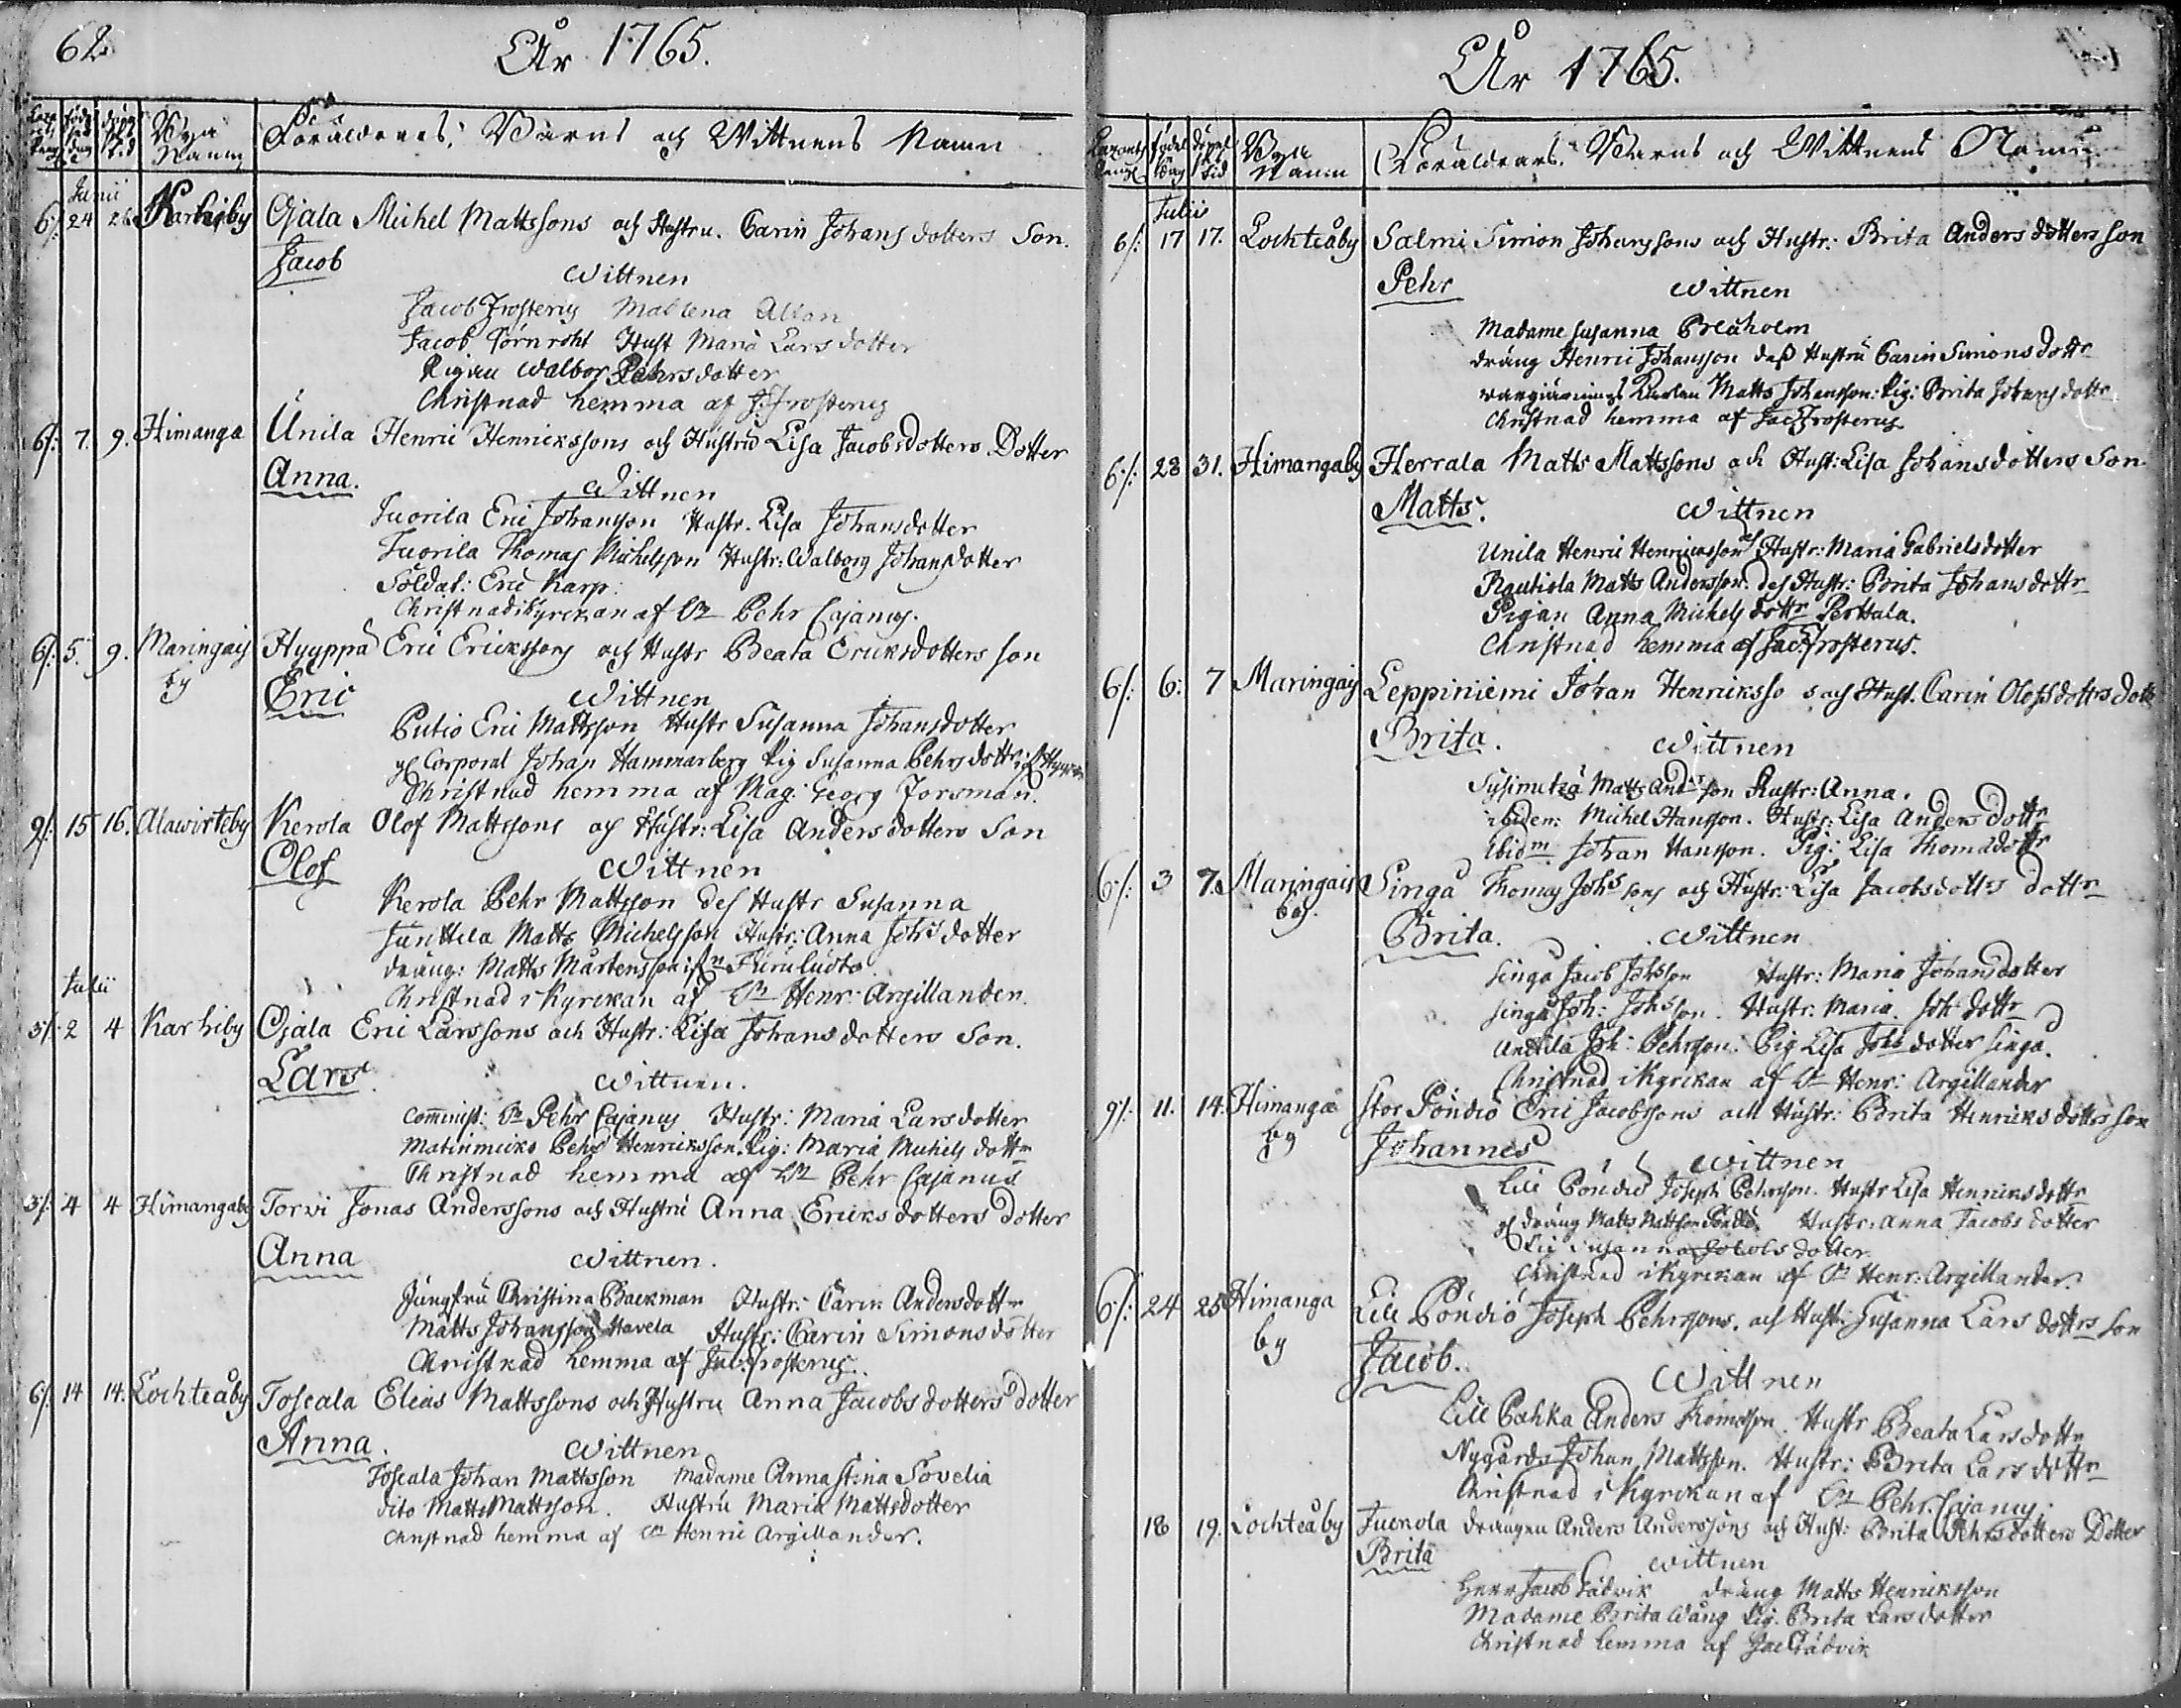 62
År 1765.
Bya Namn
Föräldrars, Barns och Wittnens Namn
Junii
6/: 24 26 Karhiby Ojala Michel Mattssons och Hustru. Carin Johansdotters Son.
Jacob
Wittnen
Jacob Frosterus Mallena
Jacob Törnroht Hust Maria Larsdotter
Pigan Walbor Pehrsdotter
Christnad hemma af J: Frosterus
6/: 7. 9. Himanga Unila Henric Henrickssons och Hustru Lisa Jacobsdotters Dotter
Anna.
Wittnen
Juorila Eric Johansson Hustr. Lisa Johansdotter
Tuorila Thomas Michelsson Hustr: Walborg Johansdotter
Soldat: Eric Karp.
Christnad i Kyrckan af Dn Pehr Cajanus.
6/: 5. 9. Maringais by Hyyppä Eric Erickssons och Hustr Beata Ericksdotters son
Eric
Wittnen
Putio Eric Mattsson Hustr Susanna Johansdotter
Corporal Johan Hammarberg Pig Susanna Pehrsdottr
Christnad hemma af Mag: Georg Forsman.
9/: 15 16. Alawirteby Kerola Olof Mattssons och Hustr: Lisa Andersdotters Son
Olof
Wittnen
Kerola Pehr Mattsson des Hustr Susanna
Junttila Matts Michelsson Hustr: Anna Johs dotter
dräng: Matts Mårtensson
Christnad i Kyrckan af Dn Henr: Argillander.
Julii
5/: 2 4 Karhiby Ojala Eric Larssons och Hustr: Lisa Johansdotters Son.
Lars
Wittnen.
Commist: Dn Pehr Cajanus Hustr: Maria Larsdotter
Matinmicko Pehr Henricksson. Pig: Maria Michels dottr
Christnad hemma af Dn Pehr Cajanus
3/: 4 4 Himangaby Torvi Jonas Anderssons och Hustru Anna Ericksdotters dotter
Anna
Wittnen.
Jungfru Christina Backman Hustr: Carin Andersdottr
Matts Johansson Havela Hustr: Carin Simonsdotter
Christnad hemma af Jac: Frosterus.
6/: 14 14. Lochteåby Toscala Elias Mattssons och Hustru Anna Jacobsdotters dotter
Anna.
Wittnen
Toscala Johan Mattsson Madame Anna Stina Sovelia
dito Matts Mattsson. Hustru Maria Mattsdotter
Christnad hemma af Dn Henric Argillander.
År 1765.
Bya Namn
Föräldrars. Barns och Wittnens Namn
Julii
6/: 17 17. Lochteåby Salmi Simon Johanssons och Hustr: Brita Andersdotters son
Pehr
Wittnen
Madame Susanna Breäholm
dräng Henric Johansson dess Hustru Carin Simonsdottr
Matts Johansson: Pig: Brita Johansdottr
Christnad hemma af Jac: Frosterus
6/: 28 31. Himangaby Herrala Matts Mattssons och Hust: Lisa Johansdotters Son
Matts.
Wittnen
Unila Henric Henricksson Hustr: Maria Gabrielsdotter
Rautiola Matts Andersson. des Hustr: Brita Johansdottr
Pigan Anna Michelsdottr Perttula.
Christnad hemma af Jac: Frosterus.
6/: 6. 7 Maringais Leppiniemi Johan Henricksso s och Hust. Carin Olofsdotters dottr
Brita.
Wittnen
Matts Anderson Hustr: Anna.
ibidem: Michel Hansson. Hustr: Lisa Andersdottr
ibidm Johan Hansson. Pig: Lisa Thomadottr
6/: 3 7. Maringais by. Singå Thomas Johssons och Hustr: Lisa Jacobsdotters dottr
Brita.
Wittnen
Singå Jacob Johsson Hustr: Maria Johansdotter
Singå Joh: Johsson. Hustr: Maria. Joh dottr
Anttila Joh: Pehrsson. Pig Lisa Johsdotter Singå.
Christnad i Kyrckan af Dn Henr: Argillander
9/: 11. 14. Himanga by Stor Pöndiö Eric Jacobssons och Hustr: Brita Henricksdotters son
Johannes
Wittnen
Lill Pöndiö Joseph Pehrsson. Hustr Lisa Henricksdottr
dräng Matts Mattsson Pöndiö. Hustr: Anna Jacobsdotter
Susanna Jacobsdotter
Christnad i Kyrckan af Dn Henr: Argillander.
6/: 24 25 Himanga by Lill Pöndiö Joseph Pehrssons. och Hust: Susanna Lars dottrs son
Jacob.
Wittnen
Lill Pahka Anders Thomasson. Hustr Beata Larsdottr
Nygårds Johan Mattsson. Hustr: Brita Larsdottr
Christnad i Kyrckan af Dn Pehr Cajanus.
18 19. Lochteåby Juckola drängen Anders Anderssons och Hust: Brita Pehrsdotters Dotter
Brita
Wittnen
Herr Jacob Falvik dräng Matts Henricksson
Madame Brita Wång Pig. Brita Larsdotter
Christnad hemma af Jac